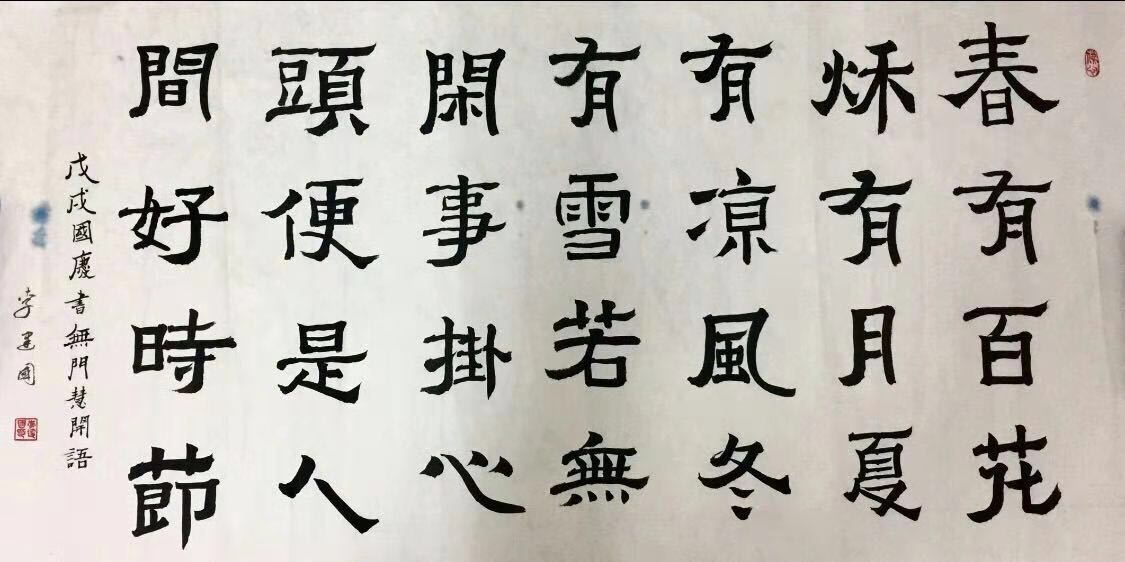 春有百花
秌有月夏
有凉風冬
有雪若無
閑事掛心
頭便是人
間好時節
戊戌國慶書無門慧開語
李建國